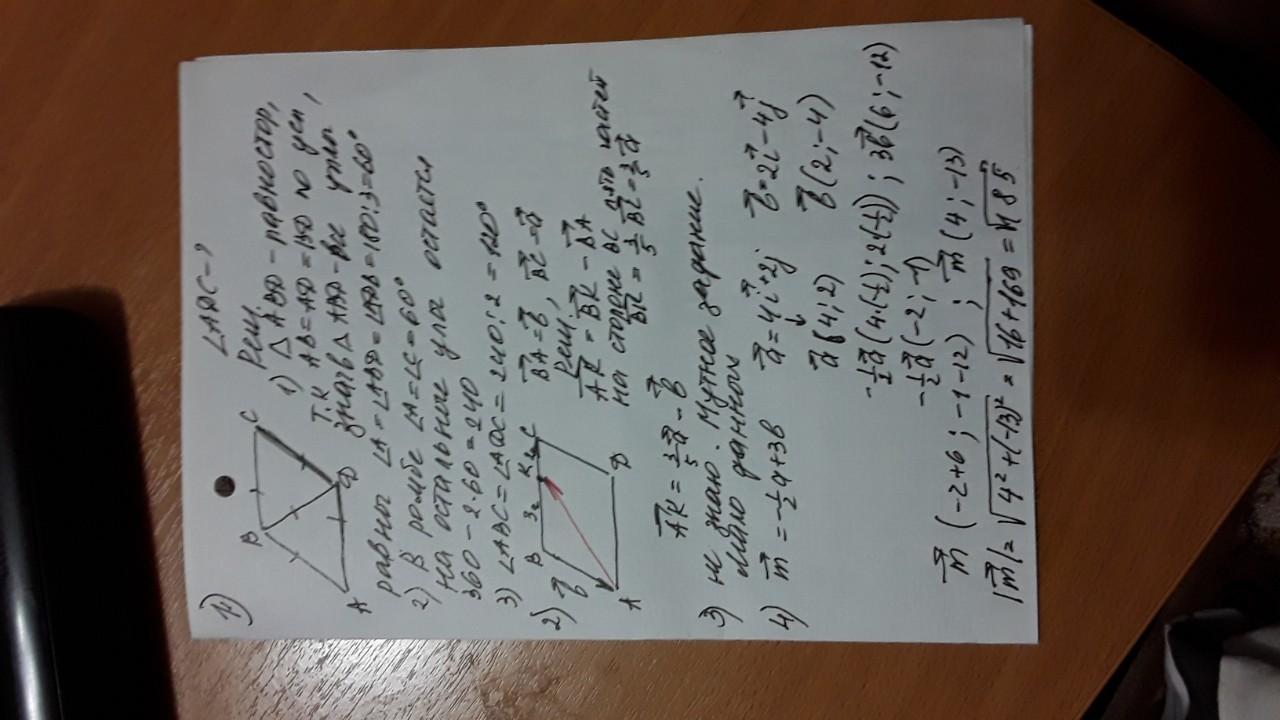 1)
∠ADC - ?
B
C
A
D
Реш.
1) △ ABD - равностор,
т.к AB = AD = BD по усл,
значв △ ABD - все углы
равны ∠A = ∠ABD = ∠ADB = 180:3 = 60°
2) В ромбе ∠A = ∠C = 60°
на остальные углы остается
360 - 2·60 = 240
3) ∠ABC = ∠ADC = 240:2 = 120°
2)
B
K
C
b
A
D
BA = b, BC = a
Реш,
AK = BK - BA
на стороне BC частей
BK = 3/5 BC = 3/5 a
AK = 3/5 a - b
3) не знаю. Мутное задание.
мало данных
4) m = -1/2 a + 3b
a = 4i + 2j
b = 2i - 4j
a (4; 2)
b (2; -4)
-1/2 a (4·(-1/2); 2(-1/2)); 3b (6; -12)
-1/2 a (-2; -1)
m (-2+6; -1-12); m (4; -13)
|m| = √4² + (-13)² = √16+169 = √185